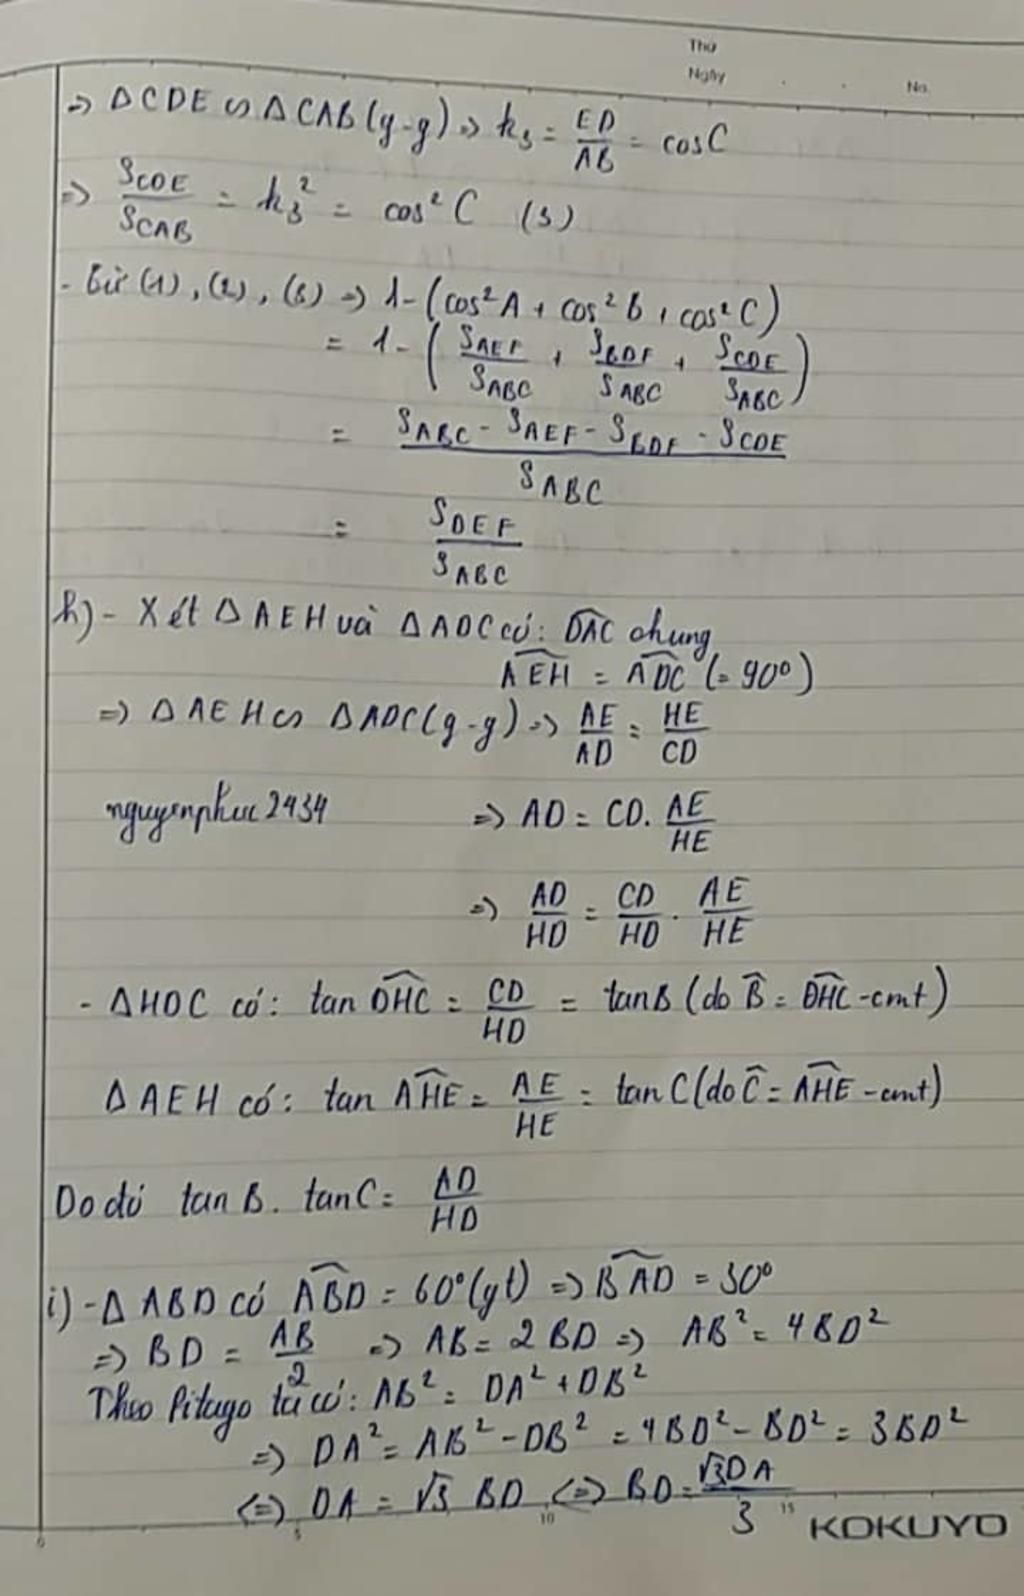 Thứ
Ngày No.
=> ΔCDE ∽ ΔCAB (g-g) => k₃ = ED/AB = cosC
=> S_CDE/S_CAB = k₃² = cos²C (3)
- Từ (1), (2), (3) => 1-(cos²A + cos²B + cos²C)
= 1 - (S_AEF/S_ABC + S_BDF/S_ABC + S_CDE/S_ABC)
= (S_ABC - S_AEF - S_BDF - S_CDE)/S_ABC
= S_DEF/S_ABC
h) - Xét ΔAEH và ΔADC có: \widehat{DAC} chung
\widehat{AEH} = \widehat{ADC} (= 90°)
=> ΔAEH ∽ ΔADC (g-g) => AE/AD = HE/CD
nguyenphuc2434 => AD = CD. AE/HE
=> AD/HD = CD/HD . AE/HE
- ΔHDC có: tan \widehat{DHC} = CD/HD = tanB (do \widehat{B} = \widehat{DHC} - cmt)
ΔAEH có: tan \widehat{AHE} = AE/HE = tanC (do \widehat{C} = \widehat{AHE} - cmt)
Do đó tanB. tanC = AD/HD
i) - ΔABD có \widehat{ABD} = 60° (gt) => \widehat{BAD} = 30°
=> BD = AB/2 => AB = 2BD => AB² = 4BD²
Theo Pitago ta có: AB² = DA² + DB²
=> DA² = AB² - DB² = 4BD² - BD² = 3BD²
<=> DA = √3 BD <=> BD = √3DA/3
0 5 10 15 KOKUYO